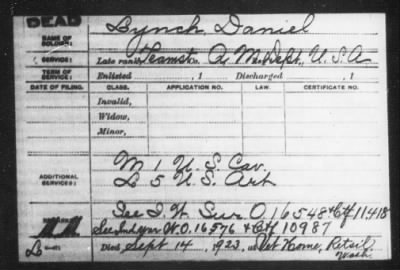 DEAD
NAME OF SOLDIER: Lynch, Daniel
SERVICE: Late rank, Teamst Co. Q. M. Dept., U.S.A
TERM OF SERVICE: Enlisted , 1 Discharged , 1
DATE OF FILING. CLASS. APPLICATION NO. LAW. CERTIFICATE NO.
Invalid,
Widow,
Minor,
ADDITIONAL SERVICES: M 1 U.S. Cav.
L 5 U.S. Art
See I. W. Sur O. 16548 & Ctf 11418
See Ind War W.O. 16576 & Ctf 10987
Died Sept 14, 1923, at Vet Home, Retsil
Wash.